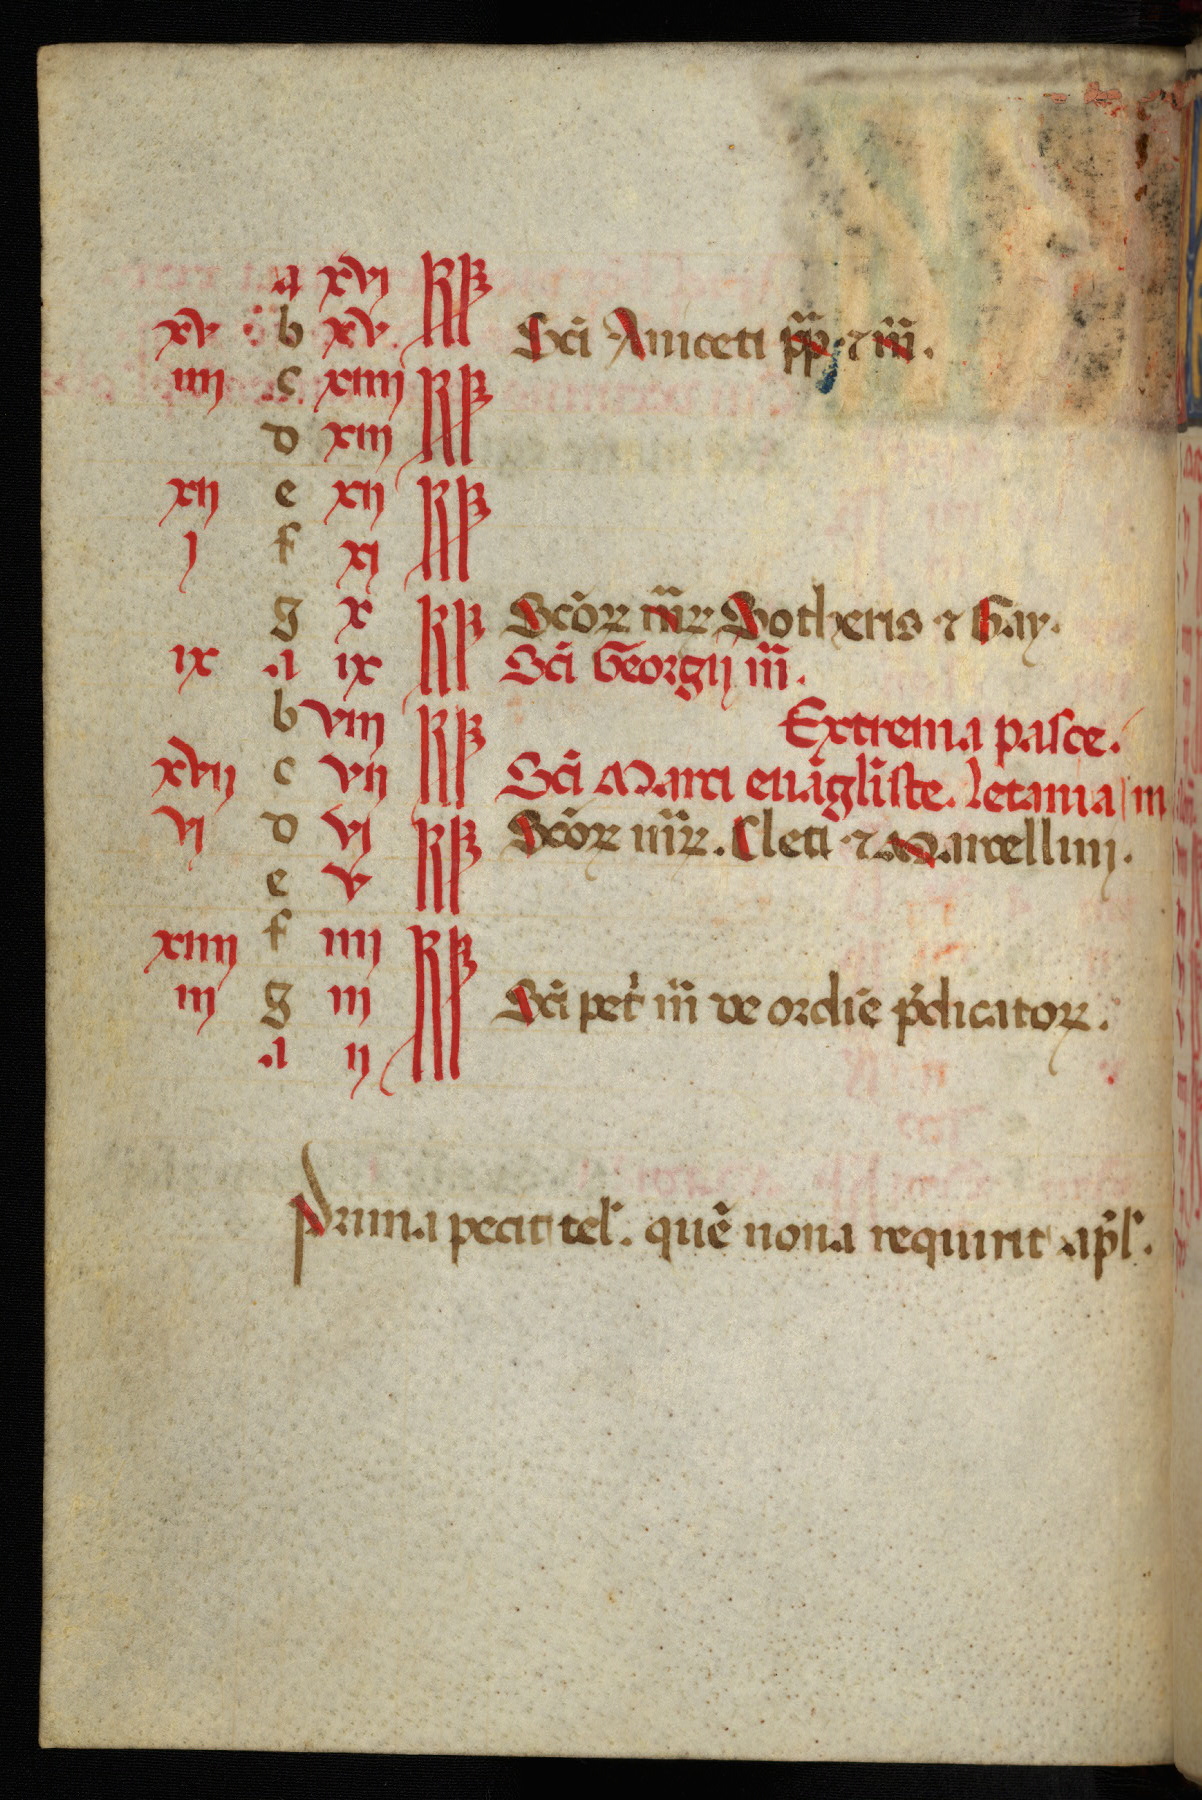 a xvi kł
xv b xv kł Sci̅ Aniceti pp̅ ⁊ m̅.
iiii c xiiii kł
d xiii kł
xii e xii kł
i f xi kł
g x kł Sco̅ꝝ mr̅ Sotheris ⁊ Gay.
ix a ix kł Sci̅ Georgij m̅.
b viii kł Extrema pasce.
xvii c vii kł Sci̅ Marci eua̅gli̅ste. letania m
vi d vi kł Sco̅ꝝ mr̅ꝝ. Cleti ⁊ Marcellini.
e v kł
xiiii f iiii kł
iii g iii kł Sci̅ pet' m̅ de ordi̅e p̅dicatoꝝ.
a ii kł
Prima petit tel'. que̅ nona requirit ap̅l'.